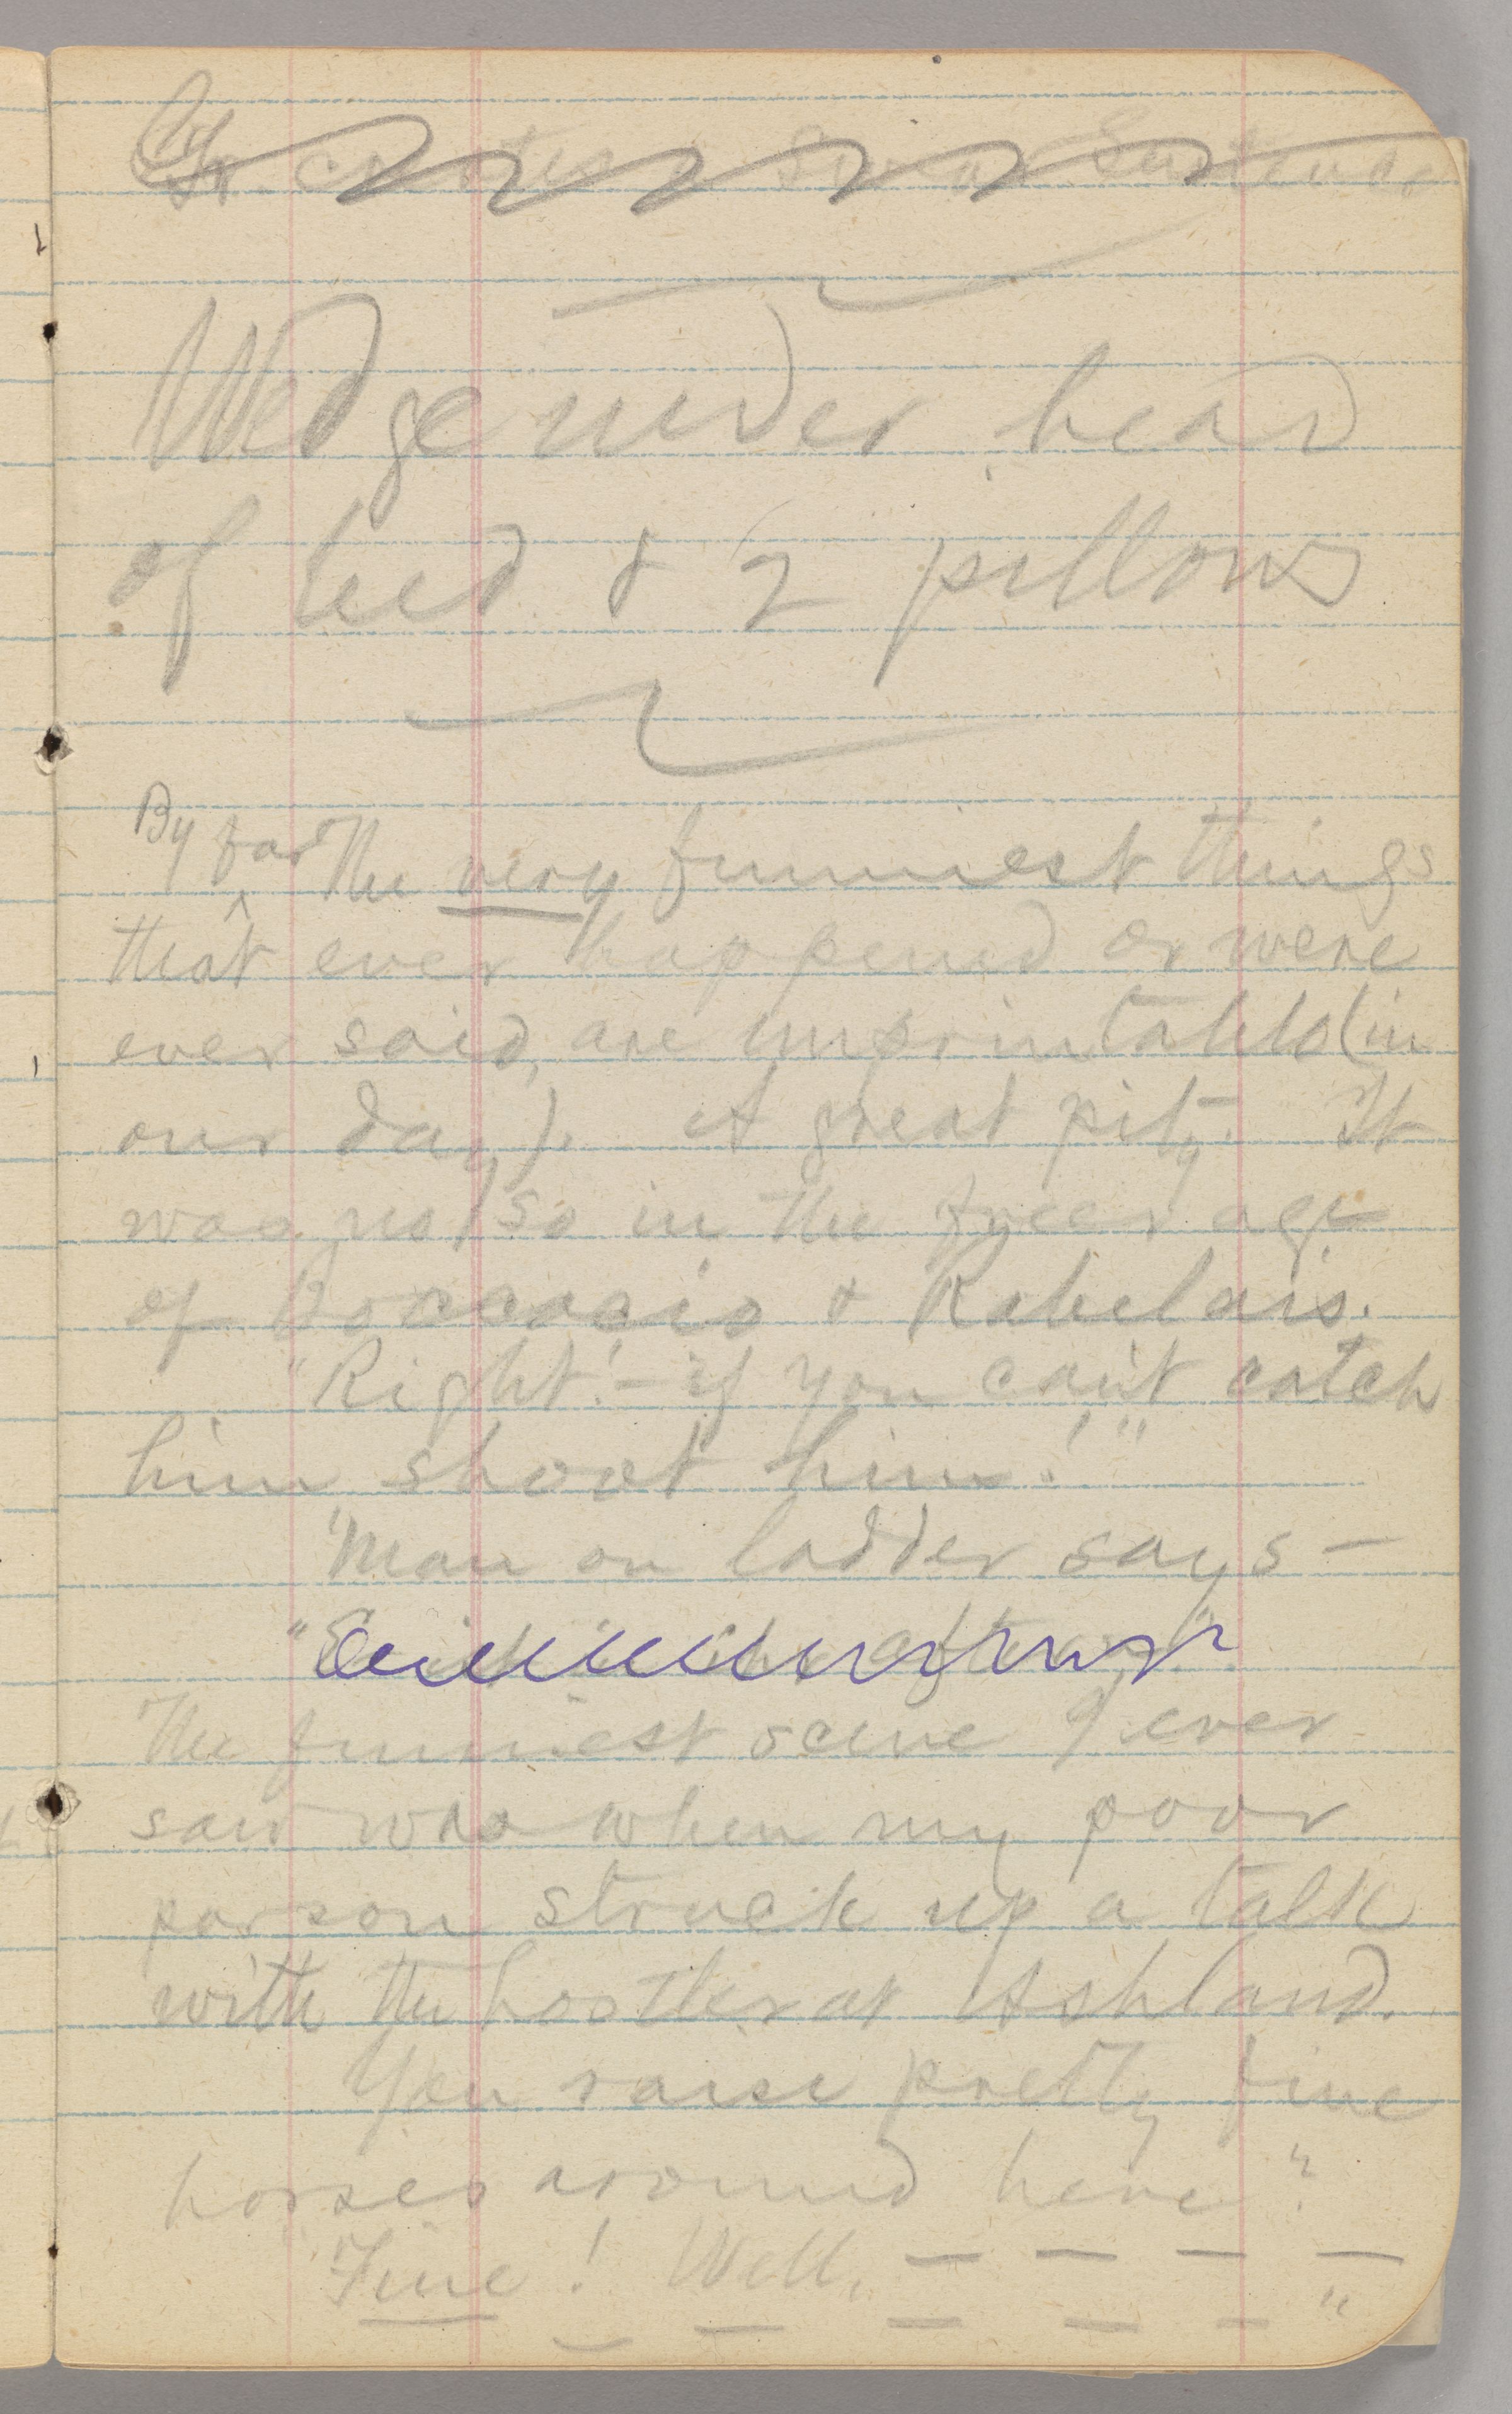 Wedge under head
of bed & 2 pillows
By far The very funniest things
that ever happened or were
ever said, are unprintable (in
our day). A great pity. It
was not so in the freer age
of Boccacio & Rabelais.
"Right! - if you can't catch
him shoot him!"
"Man on ladder says —
The funniest scene I ever
saw was when my poor
parson struck up a talk
with the hostler at Ashland.
You raise pretty fine
horses around here"?
"Fine! Well, — — — —
— — — — — "